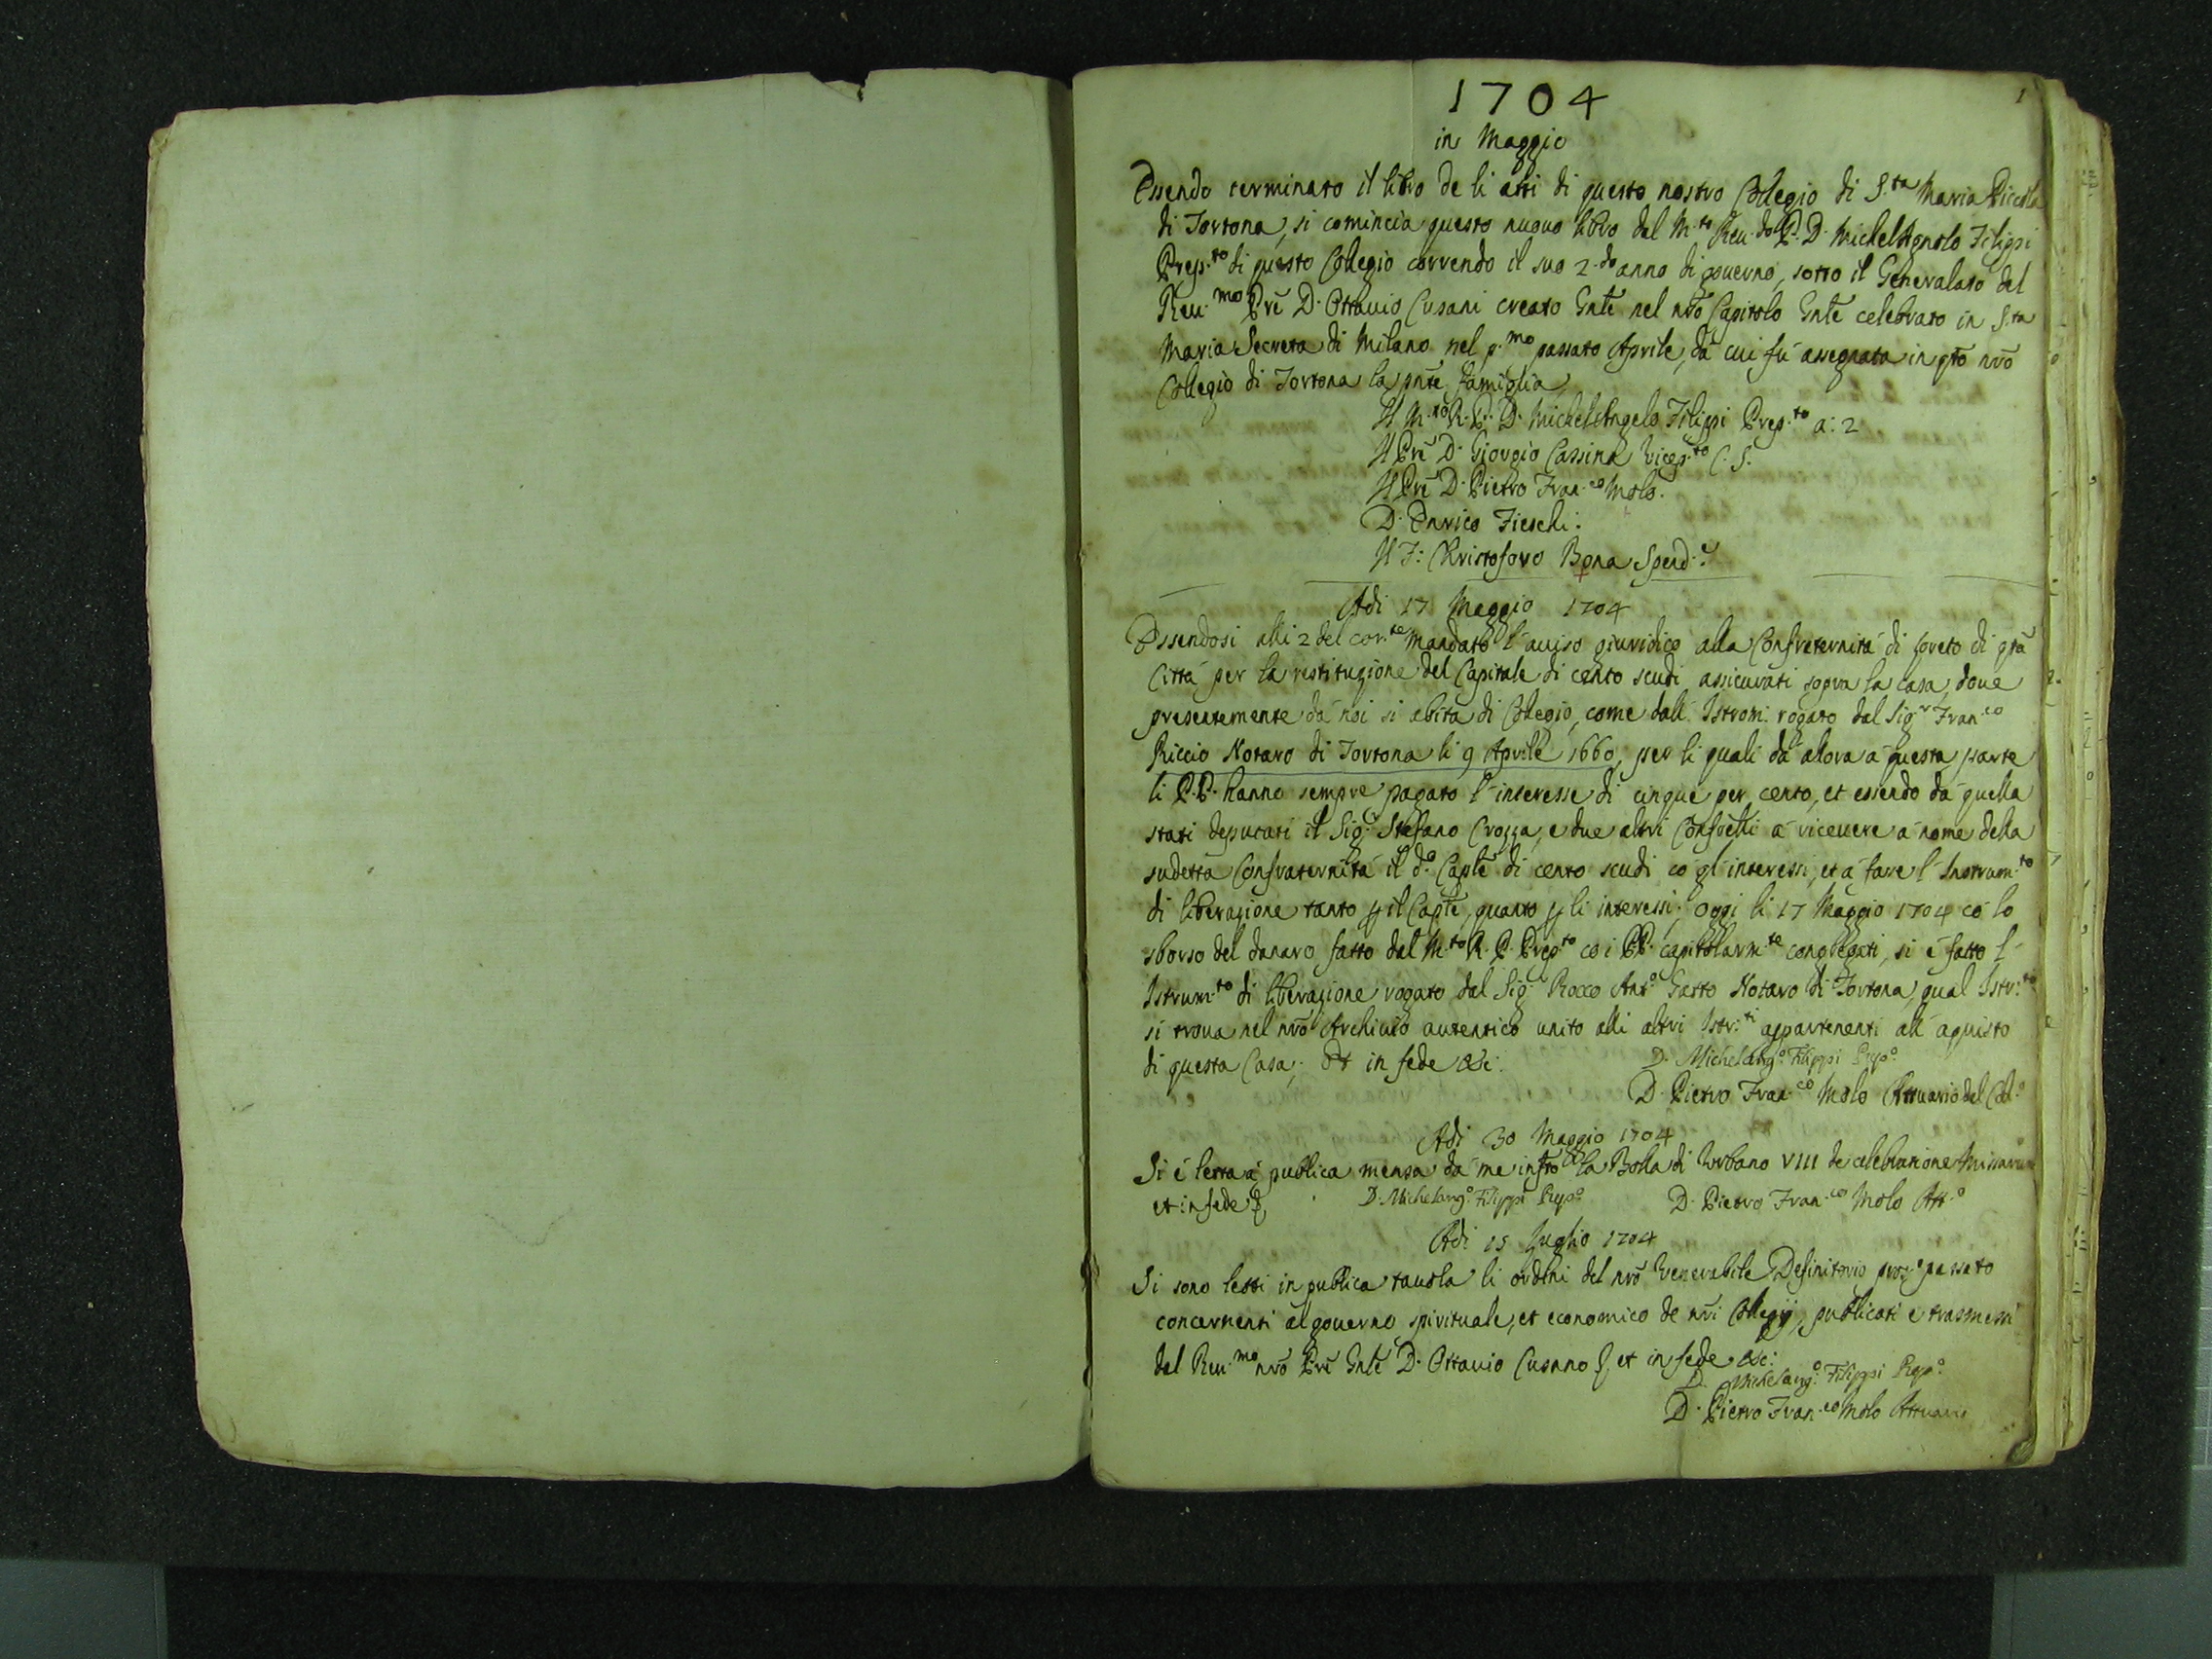 1
1704
in Maggio
Essendo terminato il libro de li atti di questo nostro Collegio di S.ta Maria Piccola
di Tortona, si comincia questo nuouo libro dal M.to Reu.do P. D. MichelAgnolo Filippi
Prep.to di questo Collegio correndo il suo 2.do anno di gouerno, sotto il Generalato del
Reu.mo Prē D. Ottauio Cusani creato Gnlē nel nrō Capitolo Gnlē celebrato in S.ta
Maria Secreta di Milano nel p.mo passato Aprile, da cui fù assegnata in qto nrō
Collegio di Tortona la pnte famiglia
Il M.to R. P. D. MichelAngelo Filippi Prep.to a: 2
Il Prē D. Giorgio Cassina Vicep.to C. S.
Il Prē D. Pietro Fran.co Molo.
D. Enrico Fieschi.
Il F: Cristoforo Bona Spend.e
Adi 17 Maggio 1704
Essendosi alli 2 del cor.te mandato l'auiso giuridico alla Confraternità di Loreto di qta
Città per la restituzione del Capitale di cento scudi assicurati sopra la casa, doue
presentemente da noi si abita di Collegio, come dall' Istrom. rogato dal Sig.r Fran.co
Riccio Notaro di Tortona li 9 Aprile 1660, per li quali da alora à questa parte
li P.P. hanno sempre pagato l'interesse di cinque per cento, et essendo da quella
stati deputati il Sig.r Stefano Crozza, e due altri Confrelli à riceuere à nome della
sudetta Confraternità il d.o Caplē di cento scudi cō gl'interessi, et à fare l'Instrum.to
di liberazione tanto p il Caplē, quanto p li interessi. Oggi li 17 Maggio 1704 cō lo
sborso del danaro fatto dal M.to R. P. Prep.to cō i PP. capitolarm.te congregati, si è fatto l'
Istrum.to di liberazione rogato dal Sig. Rocco Ant.o Gatto Notaro di Tortona, qual Istr.to
si troua nel nrō Archiuio autentico unito alli altri Istr.ti appartenenti all' aquisto
di questa Casa; Et in fede &c:
D. Michelang.o Filippi Prep.o
D. Pietro Fran.co Molo Attuario del Coll.o
Adi 30 Maggio 1704
Si è letta à publica mensa da me infrō la Bolla di Urbano VIII de celebratione Missarum
et in fede &
D. Michelang.o Filippi Prep.o
D. Pietro Fran.co Molo Att.o
Adi 15 Luglio 1704
Si sono letti in publica tauola li ordini del nrō Venerabile Definitorio pros.o passato
concernenti al gouerno spirituale, et economico de nrī Collegij, publicati e trasmessi
dal Reu.mo nrō Prē Gnlē D. Ottauio Cusano &, et in fede &c:
D. Michelang.o Filippi Prep.o
D. Pietro Fran.co Molo Attuario